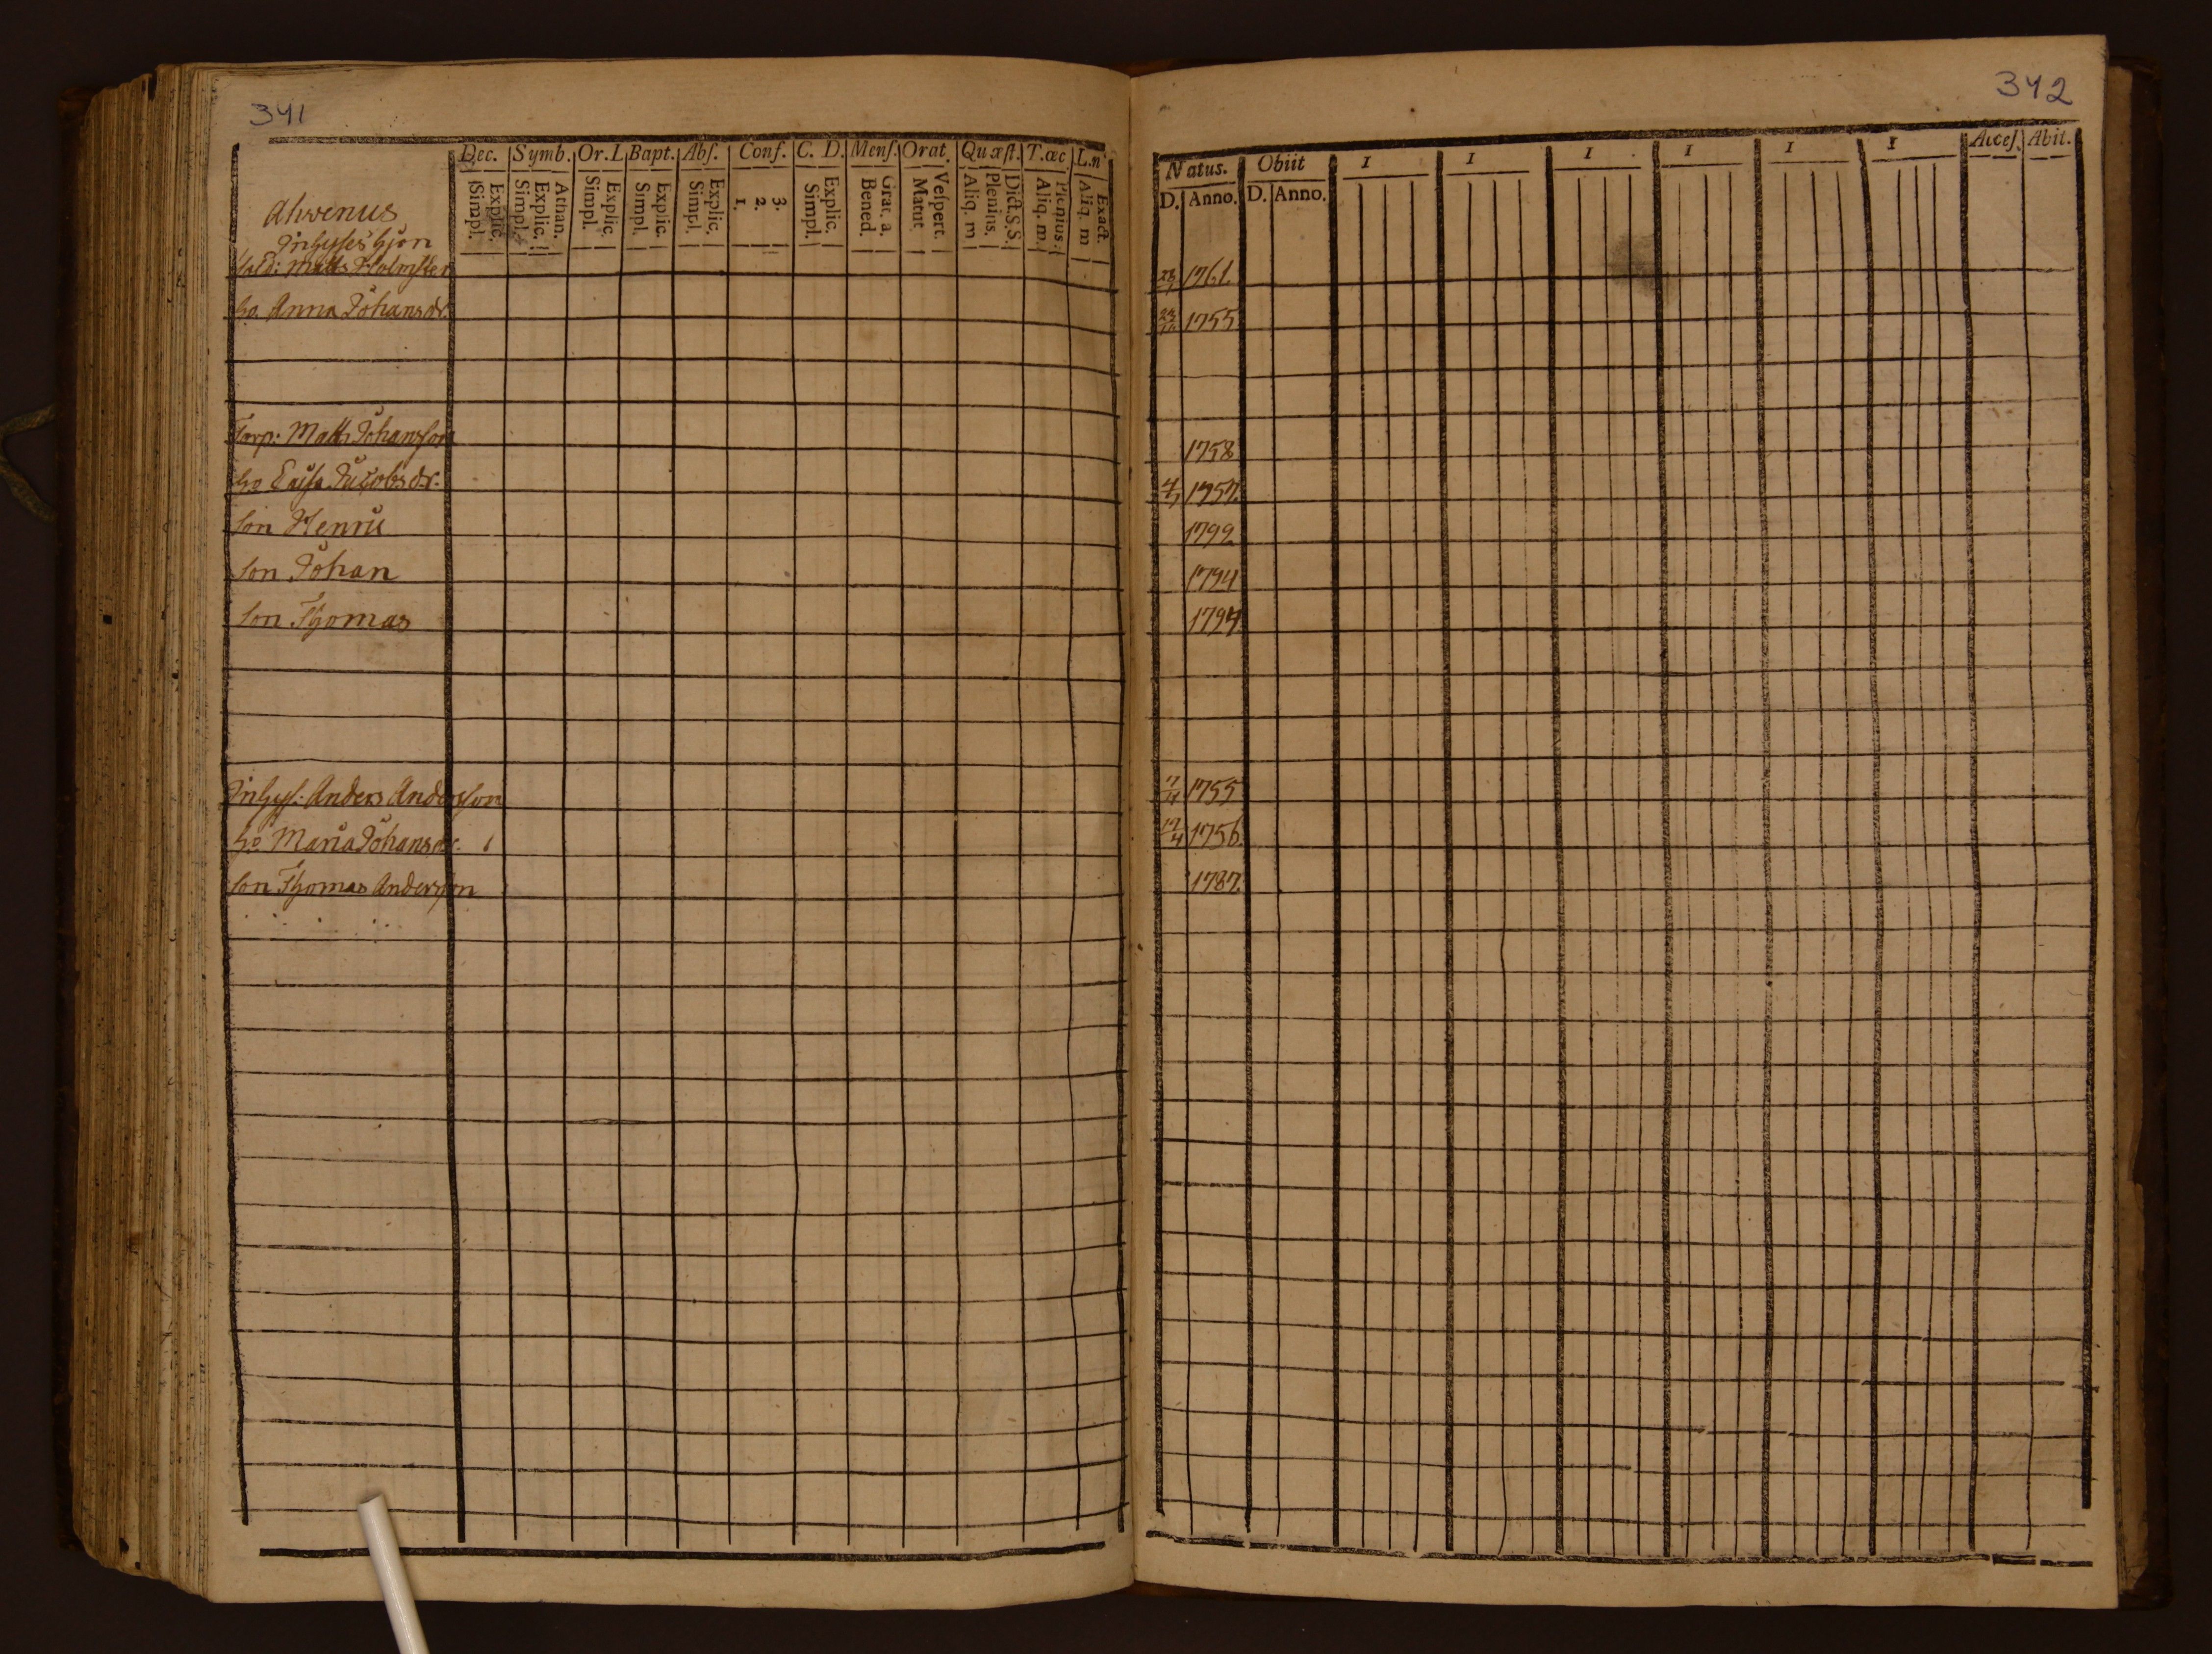 341
Dec. Symb. Or. L. Bapt. Abſ. Conf. C. D. Menſ. Orat. Quæſt. T. œc. L. n
Simpl. Explic. Simpl. Explic. Athan. Simpl. Explic. Simpl. Explic. Simpl. Explic. 1. 2. 3. Simpl. Explic. Bened. Grat. a. Matut. Veſpert. Aliq. m Plenius. Dict. S.S. Aliq. m. Plenius. Aliq. m Exact.
Ahvenus
Inhyſes hjon
Sald: Matts Holmſter
ho. Anna Johansdr.
Torp: Matts Johansſon
ho Caiſa Jacobsdr.
Son Henric
Son Johan
Son Thomas
Inhyſ. Anders Andersſon
ho Maria Johansdr.
Son Thomas Andersſon
342
Natus. Obiit 1 1 1 1 1 1 Acceſ. Abit.
D. Anno. D. Anno.
1761.
1755
1758
1757.
1792
1794
1794
1755
17/4 1756.
1787.